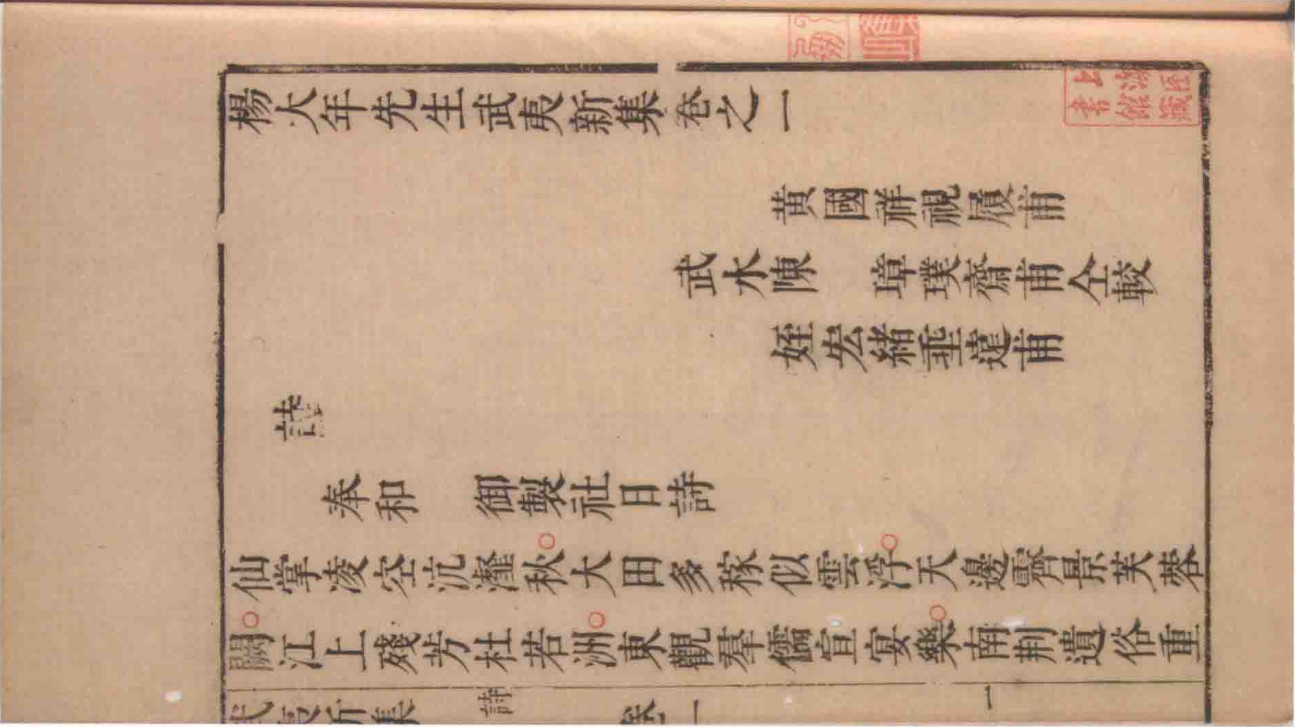 楊大年先生武夷新集卷之一
黃國祥視履甫
武水陳 璋璞齋甫仝較
姪宏緒垂遠甫
詩
奉和 御製社日詩
仙掌凌空沆瀣秋大田多稼似雲浮天邊霽景芙蓉
闕江上殘芳杜若洲東觀羣儒宣宴樂南荆遺俗重
武夷新集 詩 卷一 一
上海圖書館藏